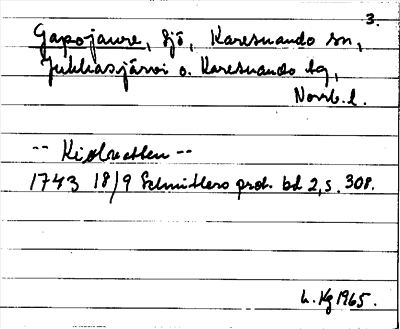 3.
Gapojaure, sjö, Karesuando sn,
Jukkasjärvi o. Karesuando tg,
Norrb. l.
-- Kiolmetten --
1743 18/9 Schnitlers prot. bd 2, s. 308.
L. Kg 1965.